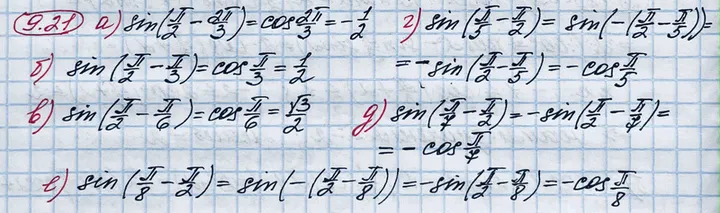 9.21 а) sin(π/2 - 2π/3) = cos 2π/3 = -1/2
г) sin(π/5 - π/2) = sin(-(π/2 - π/5)) =
= -sin(π/2 - π/5) = -cos π/5
б) sin(π/2 - π/3) = cos π/3 = 1/2
в) sin(π/2 - π/6) = cos π/6 = √3/2
д) sin(π/7 - π/2) = -sin(π/2 - π/7) =
= -cos π/7
е) sin(π/8 - π/2) = sin(-(π/2 - π/8)) = -sin(π/2 - π/8) = -cos π/8